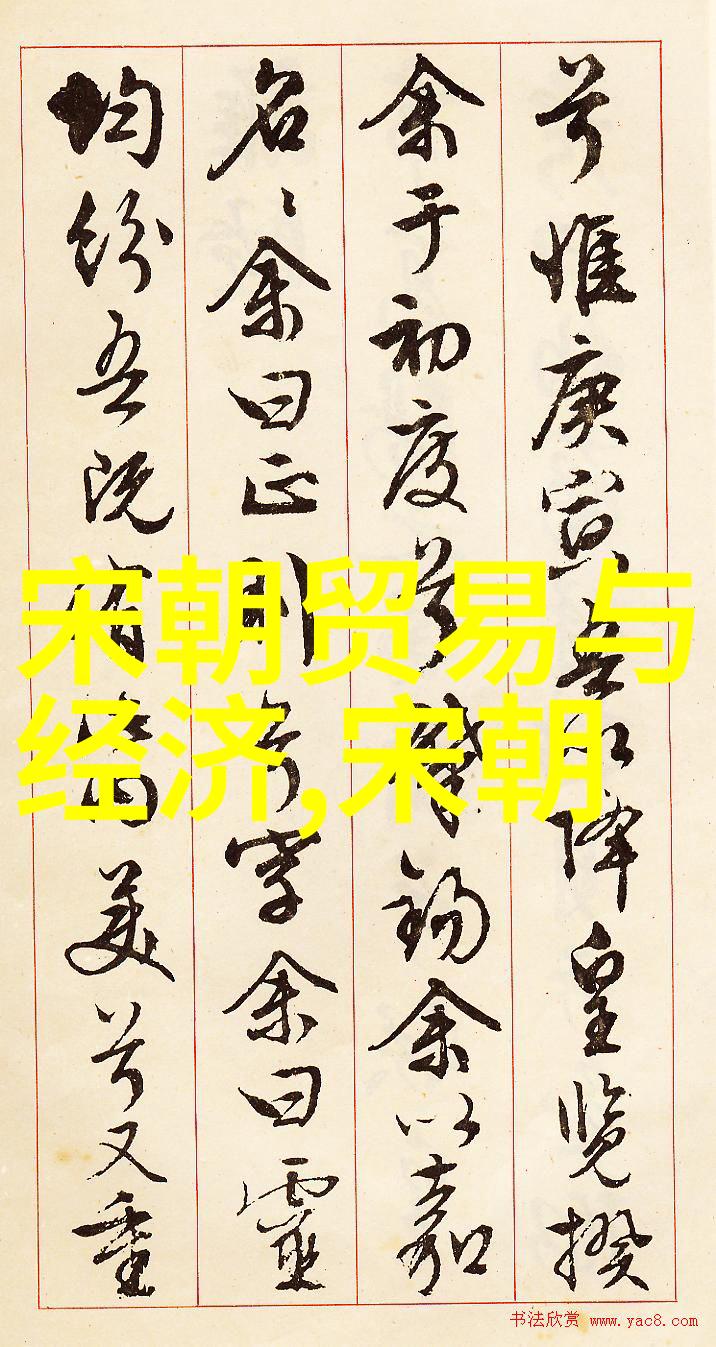 兮惟庚寅吾以降皇览揆
余于初度兮肇锡余以嘉
名〻余曰正则兮字余曰靈
均纷吾既有此内美兮又重
宋朝贸易与
经济,宋朝
书法欣赏 www.yac8.com